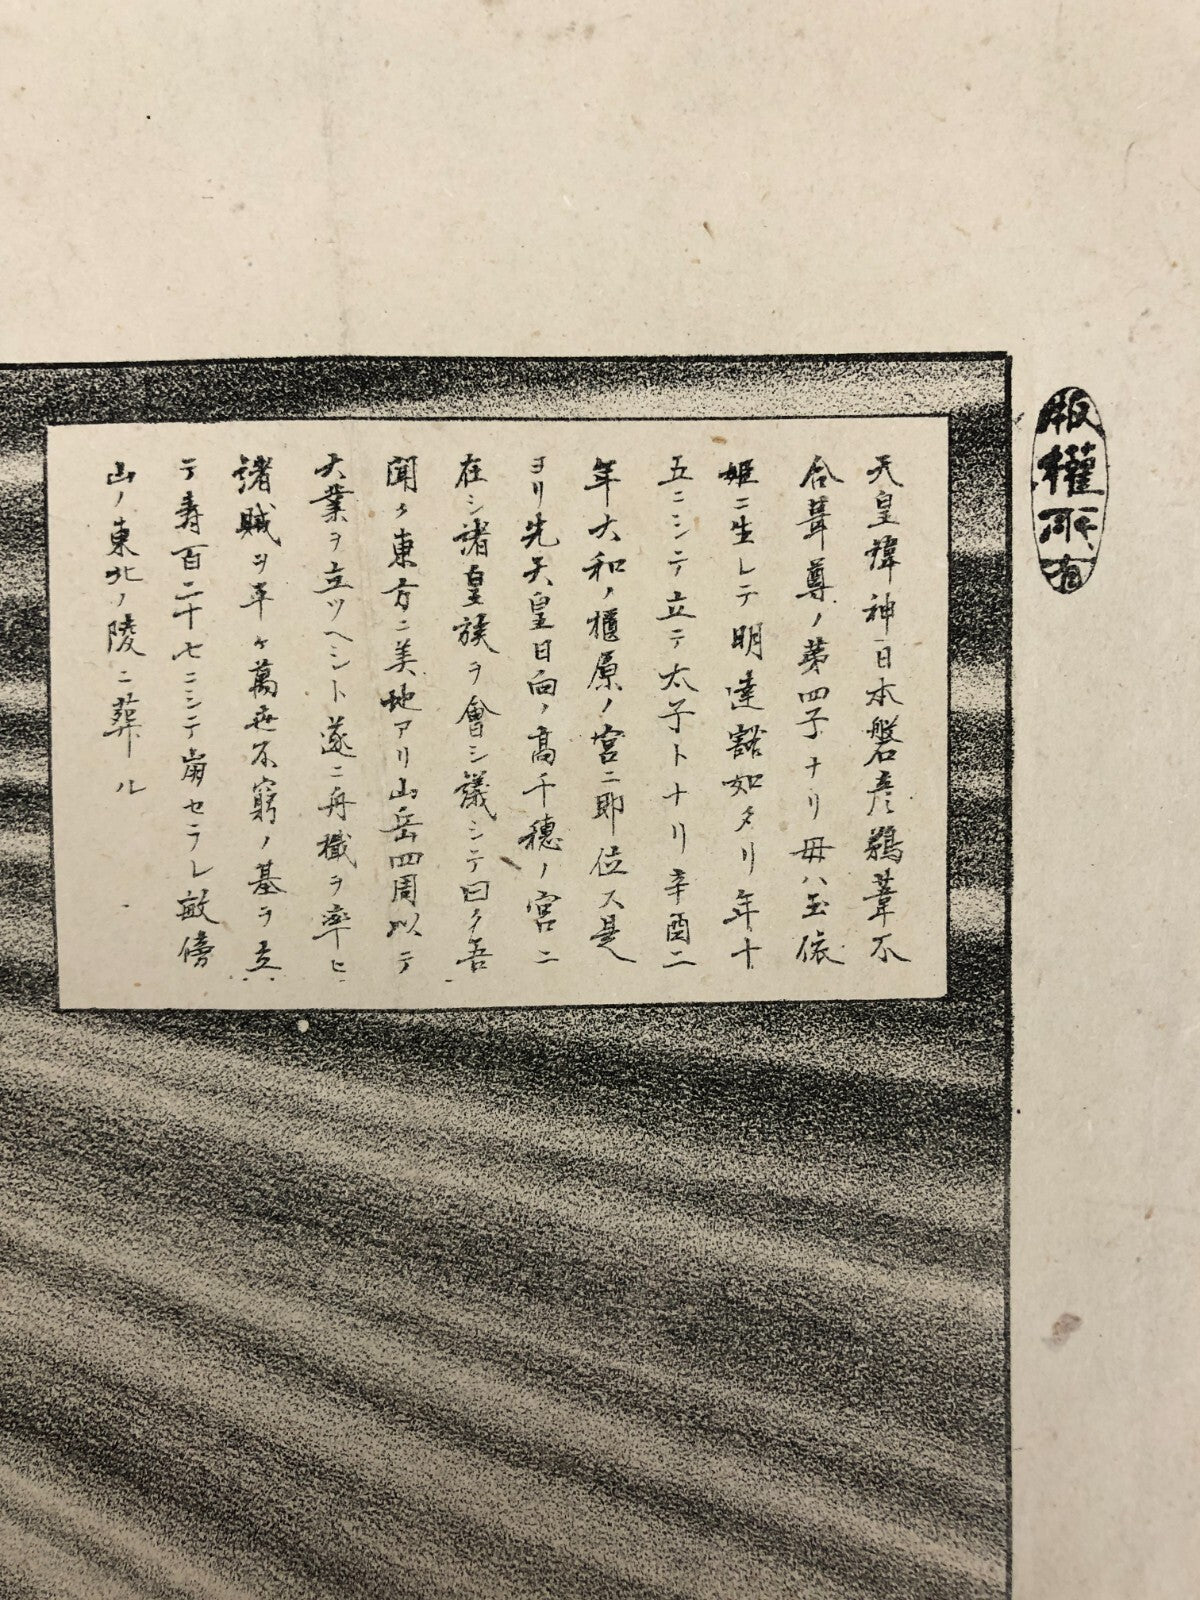 版權所有
天皇諱神日本磐彦鵜葺不
合葺尊ノ第四子ナリ母ハ玉依
姫ニ生レテ明達豁如タリ年十
五ニシテ立テ太子トナリ辛酉ニ
年大和ノ橿原ノ宮ニ即位ス是
ヨリ先天皇日向ノ高千穂ノ宮ニ
在シ諸皇族ヲ會シ議シテ曰ク吾
聞ク東方ニ美地アリ山岳四周以テ
大業ヲ立ツヘシト遂ニ舟檝ヲ率ヒ
諸賊ヲ平ケ萬世不窮ノ基ヲ立
テ壽百二十七ニシテ崩セラレ畝傍
山ノ東北ノ陵ニ葬ル